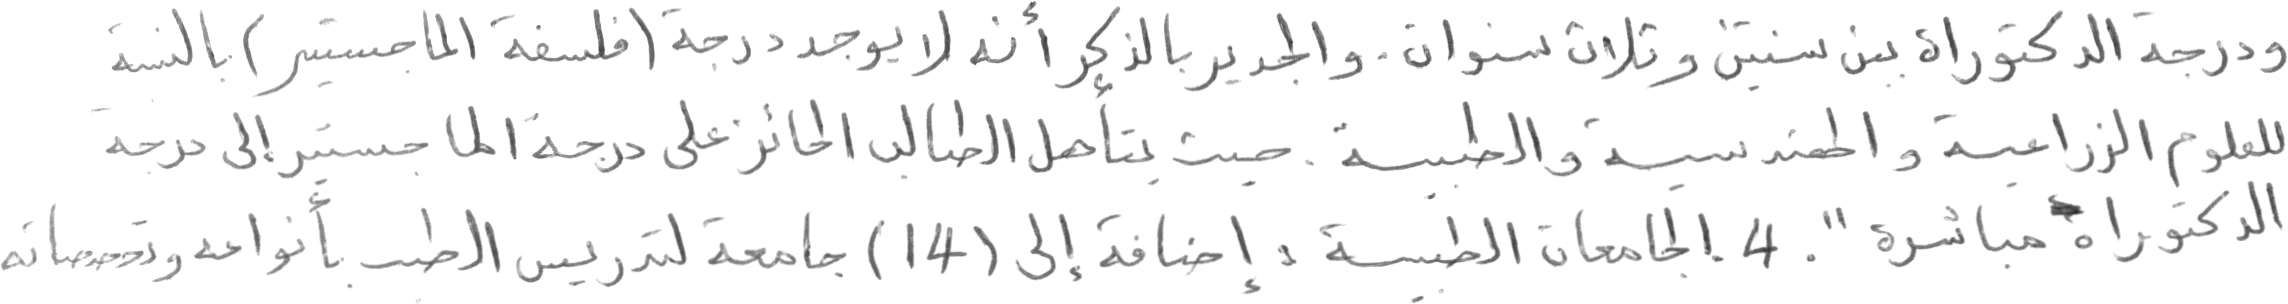 ودرجة الدكتوراة بين سنتين وثلاث سنوات. والجدير بالذكر أنه لا يوجد درجة (فلسفة الماجستير) بالنسبة
للعلوم الزراعية والهندسية والطبية. حيث يتأهل الطالب الحائز على درجة الماجستير إلى درجة
الدكتوراة مباشرة". 4. الجامعات الطبية: إضافة إلى (14) جامعة لتدريس الطب بأنواعه وتخصصاته